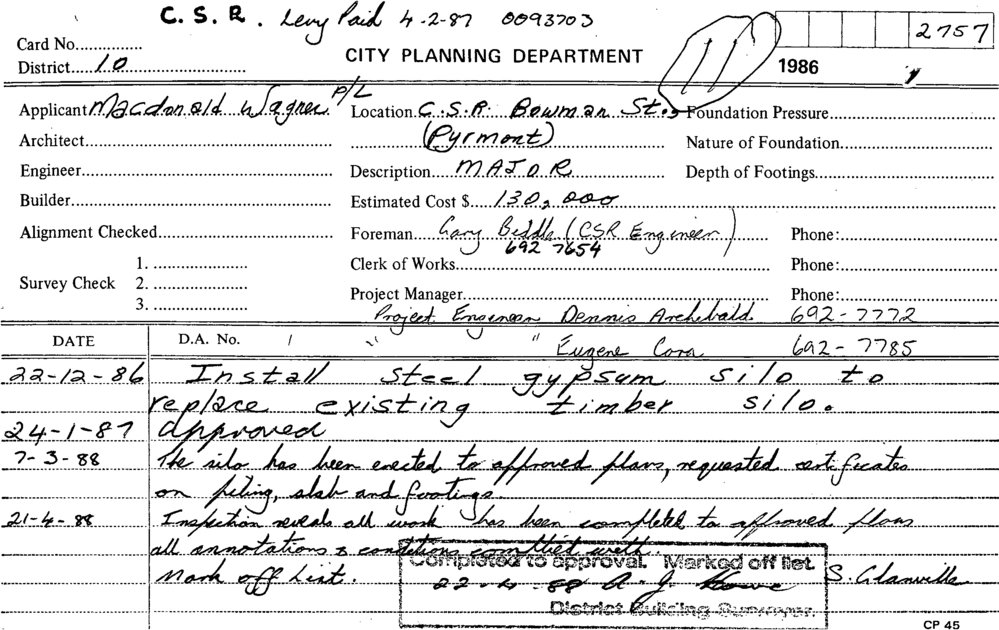 C.S.R. Levy Paid 4-2-87 0093703
2757
Card No...............
CITY PLANNING DEPARTMENT
District.....10
1986
Applicant Macdonald Wagner P/L Location C.S.R. Bowman St., Foundation Pressure
Architect (Pyrmont) Nature of Foundation
Engineer Description MAJOR Depth of Footings
Builder Estimated Cost $ 130,000
Alignment Checked Foreman Gary Biddle (CSR Engineer) Phone:
692 7654
1. Clerk of Works Phone:
Survey Check 2.
3. Project Manager Phone:
Project Engineer Dennis Archibald 692-7772
DATE D.A. No. / " " Eugene 692-7785
22-12-86 Install steel gypsum silo to
replace existing timber silo.
24-1-87 approved
7-3-88 The silo has been erected to approved plans, requested certificates
on piling, slab and footings.
21-4-88 Inspection reveals all work has been completed to approved plans
all annotations & conditions complied with.
Completed to approval. Marked off list.
Mark off List. 22-4-88 A. J. Howe S. Glanville
District Building Surveyor.
CP 45